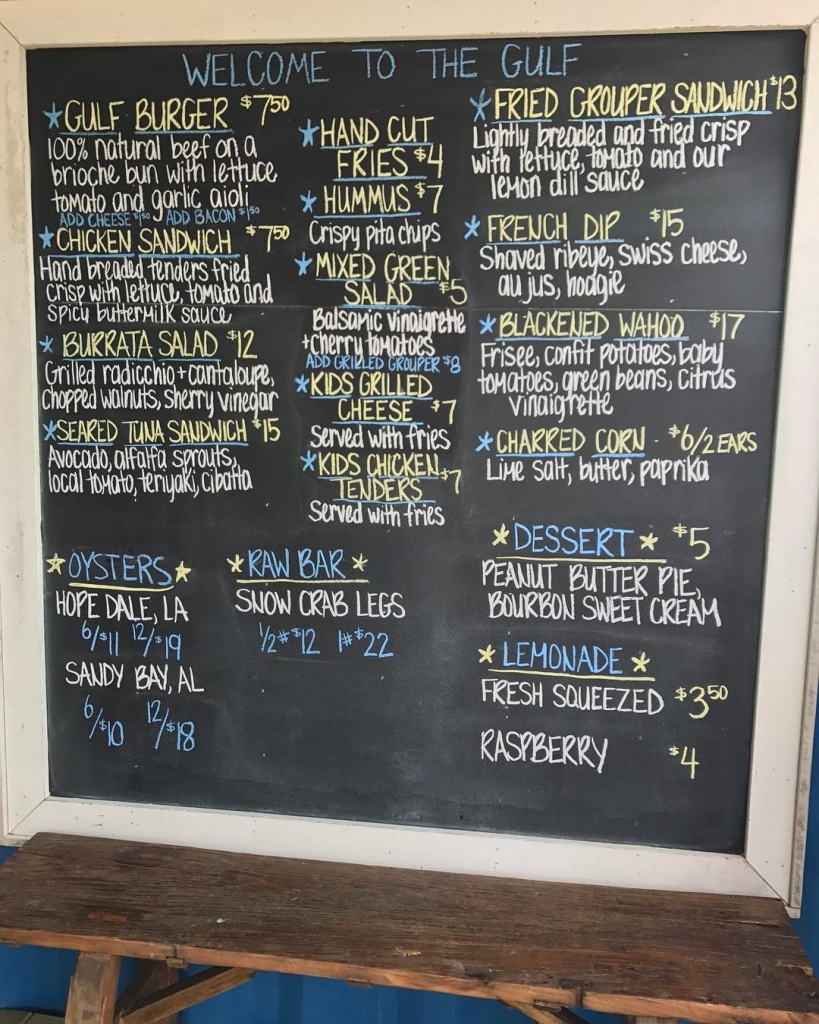 WELCOME TO THE GULF
★GULF BURGER $7.50
100% natural beef on a
brioche bun with lettuce
tomato and garlic aioli
ADD CHEESE $1.50 ADD BACON $1.50
★CHICKEN SANDWICH $7.50
Hand breaded tenders fried
crisp with lettuce, tomato and
spicy buttermilk sauce
★BURRATA SALAD $12
Grilled radicchio + cantaloupe,
chopped walnuts, sherry vinegar
★SEARED TUNA SANDWICH $15
Avocado, alfalfa sprouts,
local tomato, teriyaki, cibatta
★HAND CUT
FRIES $4
★HUMMUS $7
Crispy pita chips
★MIXED GREEN
SALAD $5
Balsamic vinaigrette
+cherry tomatoes
ADD GRILLED GROUPER $8
★KIDS GRILLED
CHEESE $7
Served with fries
★KIDS CHICKEN
TENDERS $7
Served with fries
★FRIED GROUPER SANDWICH $13
Lightly breaded and fried crisp
with lettuce, tomato and our
lemon dill sauce
★FRENCH DIP $15
Shaved ribeye, swiss cheese,
au jus, hoagie
★BLACKENED WAHOO $17
Frisee, confit potatoes, baby
tomatoes, green beans, citrus
vinaigrette
★CHARRED CORN - $6/2 EARS
Lime salt, butter, paprika
★OYSTERS★
HOPE DALE, LA
6/$11 12/$19
SANDY BAY, AL
6/$10 12/$18
★RAW BAR★
SNOW CRAB LEGS
1/2# $12 1# $22
★DESSERT★ $5
PEANUT BUTTER PIE,
BOURBON SWEET CREAM
★LEMONADE★
FRESH SQUEEZED $3.50
RASPBERRY $4